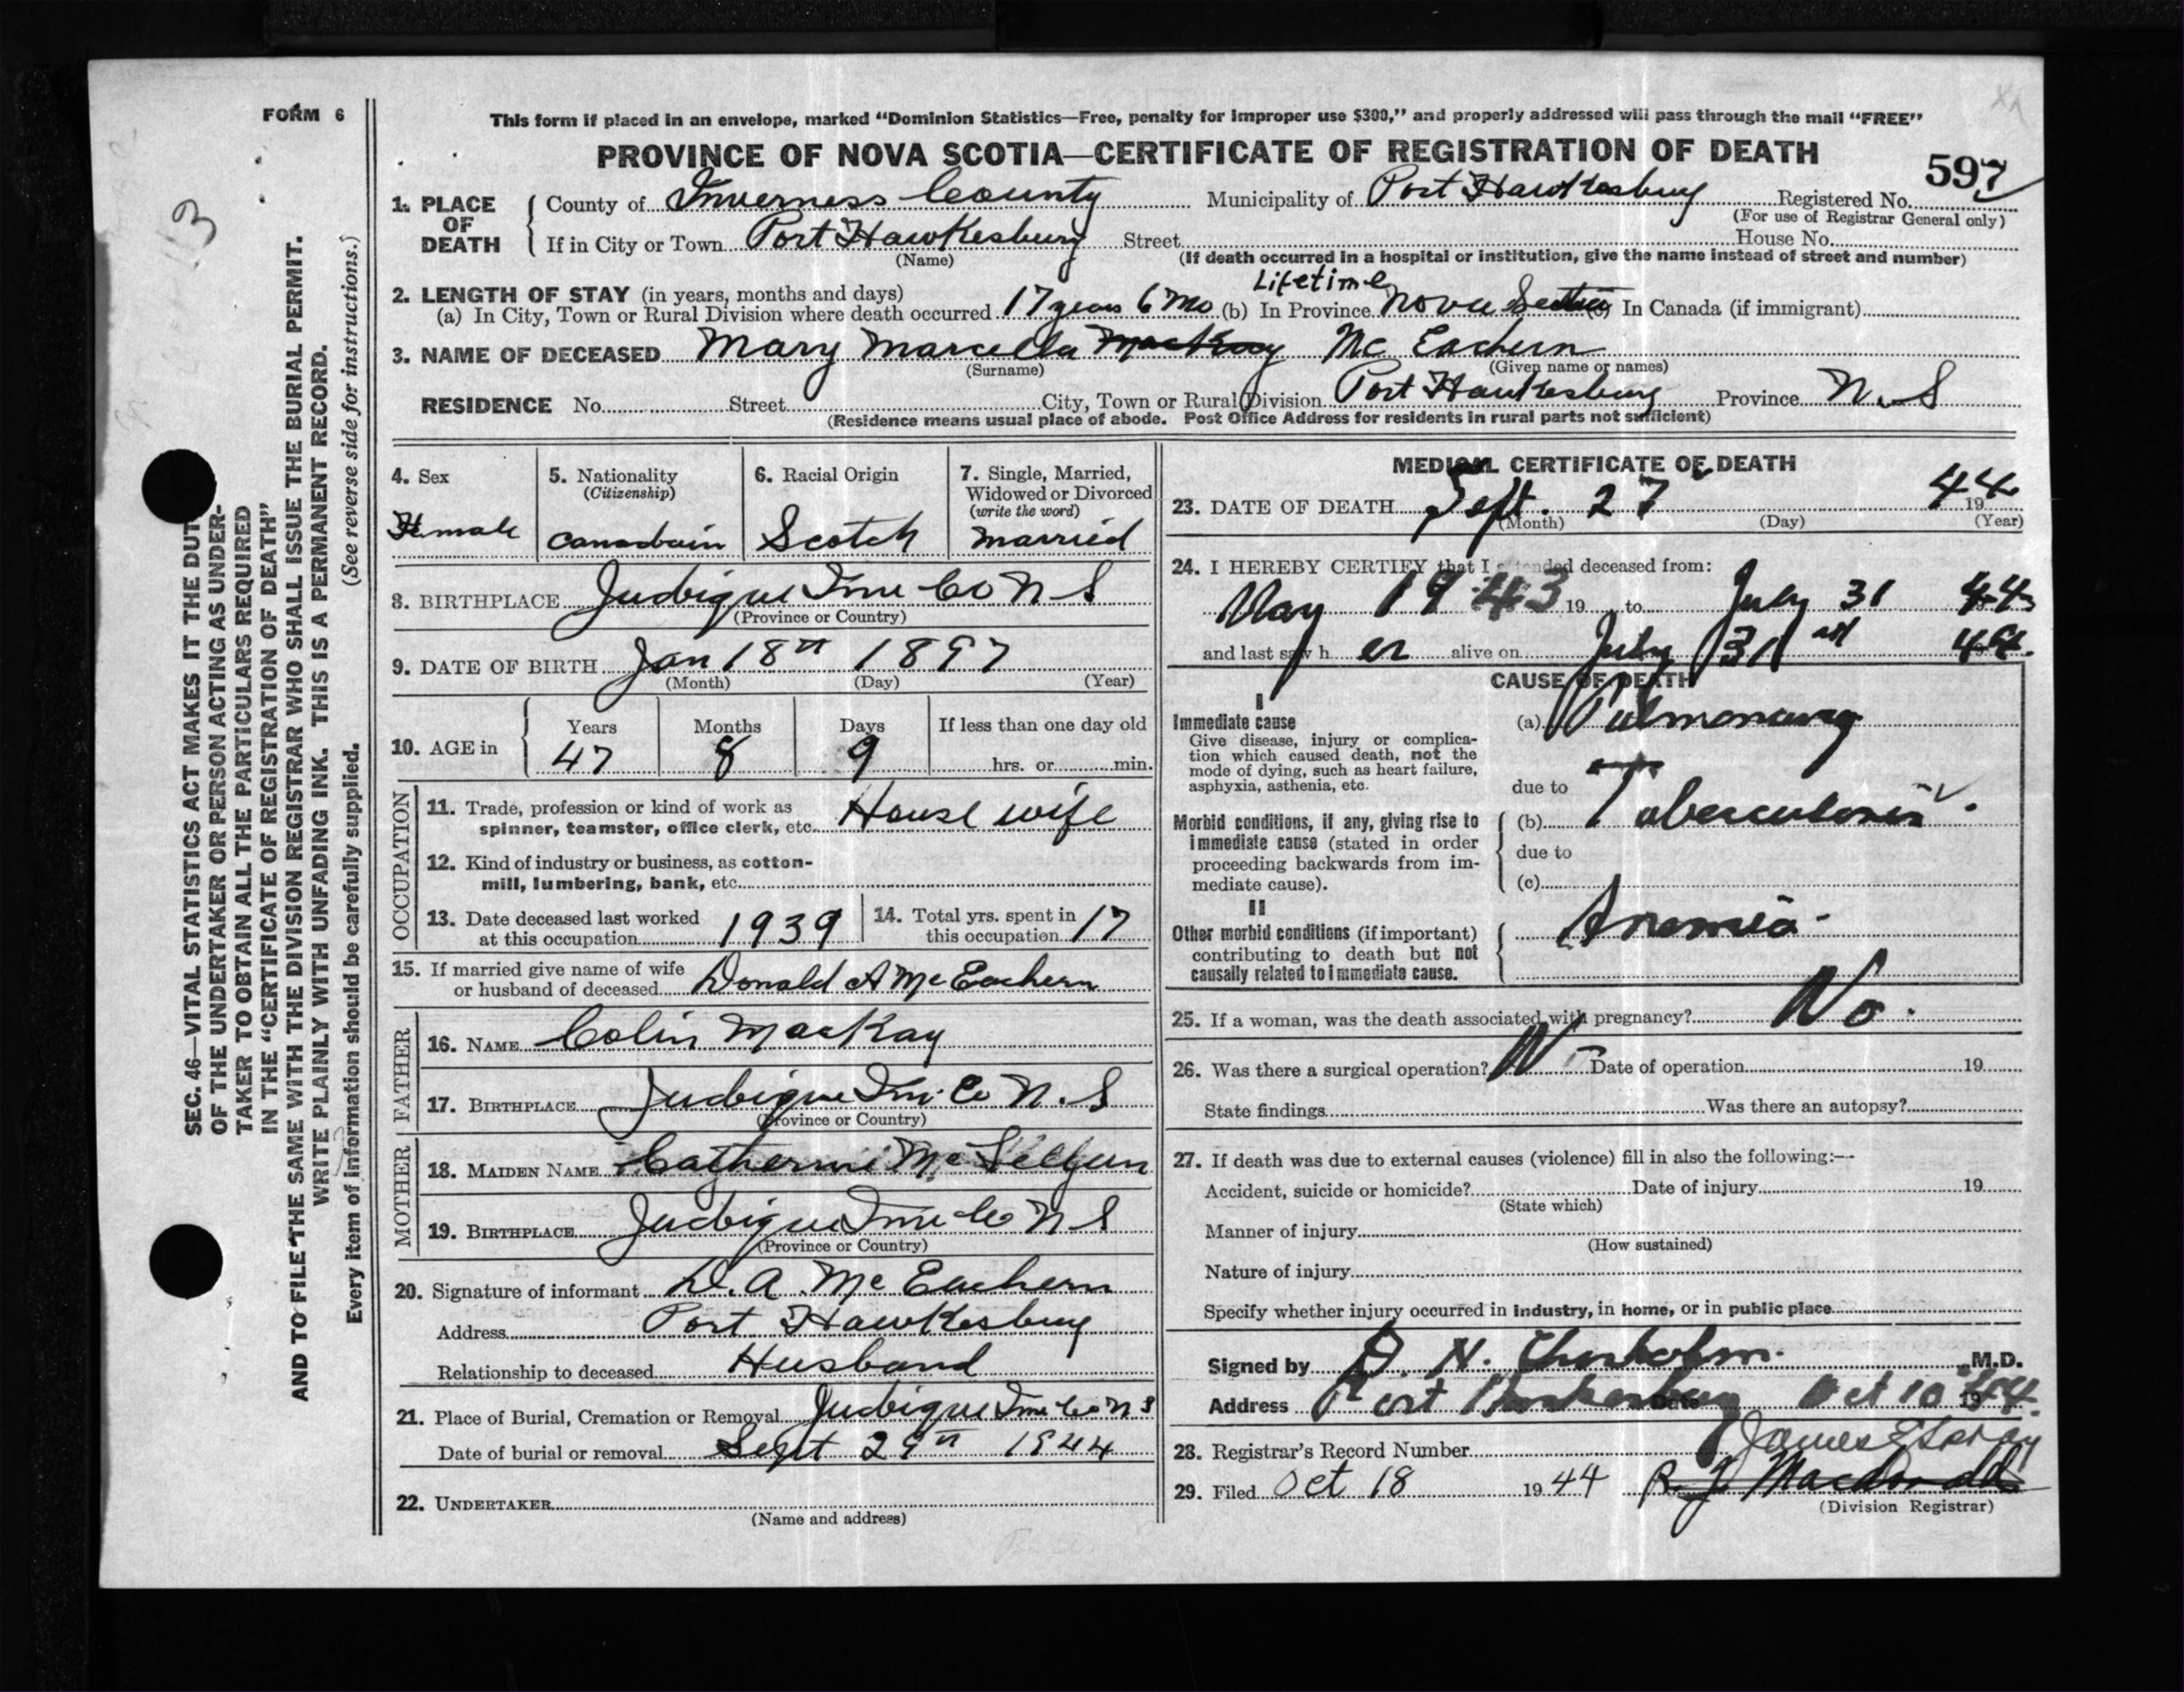 FORM 6
This form if placed in an envelope, marked "Dominion Statistics—Free, penalty for improper use $300," and properly addressed will pass through the mail "FREE"
PROVINCE OF NOVA SCOTIA—CERTIFICATE OF REGISTRATION OF DEATH
597
1. PLACE OF DEATH { County of Inverness County Municipality of Port Hawkesbury Registered No.
(For use of Registrar General only)
If in City or Town Port Hawkesbury Street House No.
(Name) (If death occurred in a hospital or institution, give the name instead of street and number)
Lifetime
2. LENGTH OF STAY (in years, months and days)
(a) In City, Town or Rural Division where death occurred 17 years 6 Mo (b) In Province Nova Scotia (c) In Canada (if immigrant)
3. NAME OF DECEASED Mary Marcella MacKay Mc Eachern
(Surname) (Given name or names)
RESIDENCE No. Street City, Town or Rural Division Port Hawkesbury Province N.S
(Residence means usual place of abode. Post Office Address for residents in rural parts not sufficient)
4. Sex
Female
5. Nationality
(Citizenship)
Canadain
6. Racial Origin
Scotch
7. Single, Married,
Widowed or Divorced
(write the word)
Married
8. BIRTHPLACE Judique Inv Co N S
(Province or Country)
9. DATE OF BIRTH Jan 18th 1897
(Month) (Day) (Year)
10. AGE in { Years Months Days If less than one day old
47 8 9 hrs. or min.
OCCUPATION
11. Trade, profession or kind of work as
spinner, teamster, office clerk, etc. House wife
12. Kind of industry or business, as cotton-
mill, lumbering, bank, etc.
13. Date deceased last worked
at this occupation 1939
14. Total yrs. spent in
this occupation 17
15. If married give name of wife
or husband of deceased Donald A McEachern
FATHER
16. NAME Colin MacKay
17. BIRTHPLACE Judique Inv. Co N.S
(Province or Country)
MOTHER
18. MAIDEN NAME Catherine Mc
19. BIRTHPLACE Judique Inv Co N S
(Province or Country)
20. Signature of informant D. A. Mc Eachern
Address Port Hawkesbury
Relationship to deceased Husband
21. Place of Burial, Cremation or Removal Judique Inv Co N S
Date of burial or removal Sept 29th 1944
22. UNDERTAKER
(Name and address)
MEDICAL CERTIFICATE OF DEATH
23. DATE OF DEATH Sept. 27 1944
(Month) (Day) (Year)
24. I HEREBY CERTIFY that I attended deceased from:
May 1943 19 to July 31 44
and last saw h er alive on July 31st 44.
CAUSE OF DEATH
I
Immediate cause
Give disease, injury or complica-
tion which caused death, not the
mode of dying, such as heart failure,
asphyxia, asthenia, etc.
(a) Pulmonary
due to
Morbid conditions, if any, giving rise to
immediate cause (stated in order
proceeding backwards from im-
mediate cause).
(b) Tuberculosis
due to
(c)
II
Other morbid conditions (if important)
contributing to death but not
causally related to immediate cause.
Anemia
25. If a woman, was the death associated with pregnancy? No.
26. Was there a surgical operation? No Date of operation 19
State findings Was there an autopsy?
27. If death was due to external causes (violence) fill in also the following:—
Accident, suicide or homicide? Date of injury 19
(State which)
Manner of injury
(How sustained)
Nature of injury
Specify whether injury occurred in industry, in home, or in public place
Signed by N. Chisholm. M.D.
Address Port Hawkesbury Date Oct 10 1944.
28. Registrar's Record Number
James
29. Filed Oct 18 1944 R. J. Macdonald
(Division Registrar)
SEC. 46—VITAL STATISTICS ACT MAKES IT THE DUTY
OF THE UNDERTAKER OR PERSON ACTING AS UNDER-
TAKER TO OBTAIN ALL THE PARTICULARS REQUIRED
IN THE "CERTIFICATE OF REGISTRATION OF DEATH"
AND TO FILE THE SAME WITH THE DIVISION REGISTRAR WHO SHALL ISSUE THE BURIAL PERMIT.
WRITE PLAINLY WITH UNFADING INK. THIS IS A PERMANENT RECORD.
Every item of information should be carefully supplied. (See reverse side for instructions.)